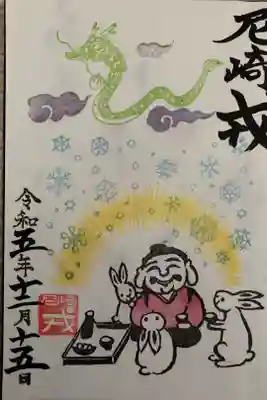 尼崎戎
令和五年十二月十五日
尼崎戎